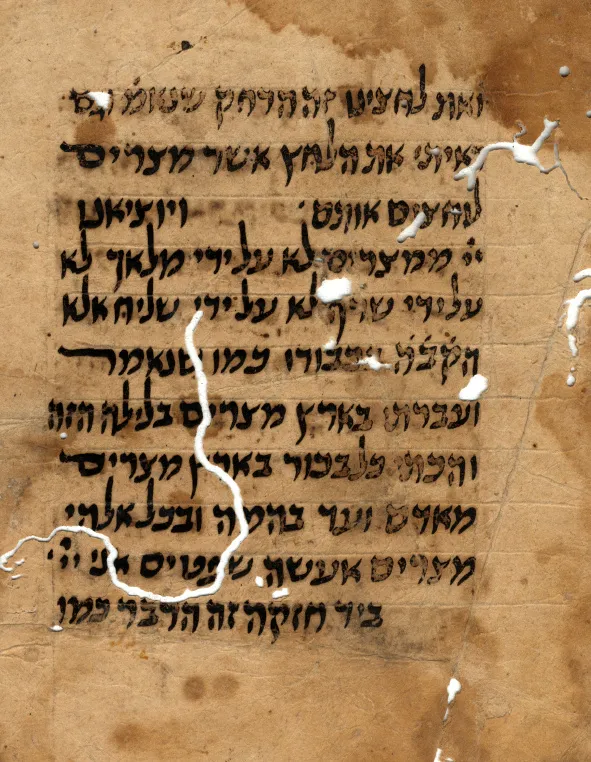 ואת לחצינו זה הדחק וגם
ראיתי את הלחץ אשר מצרים
לחצים אותם ויוציאנו
יי ממצרים לא על ידי מלאך לא
על ידי שרף לא על ידי שליח אלא
הקבה בכבודו כמו שנאמר
ועברתי בארץ מצרים בלילה הזה
והכתי כל בכור בארץ מצרים
מאדם ועד בהמה ובכל אלהי
מצרים אעשה שפטים אני יי
ביד חזקה זה הדבר כמו